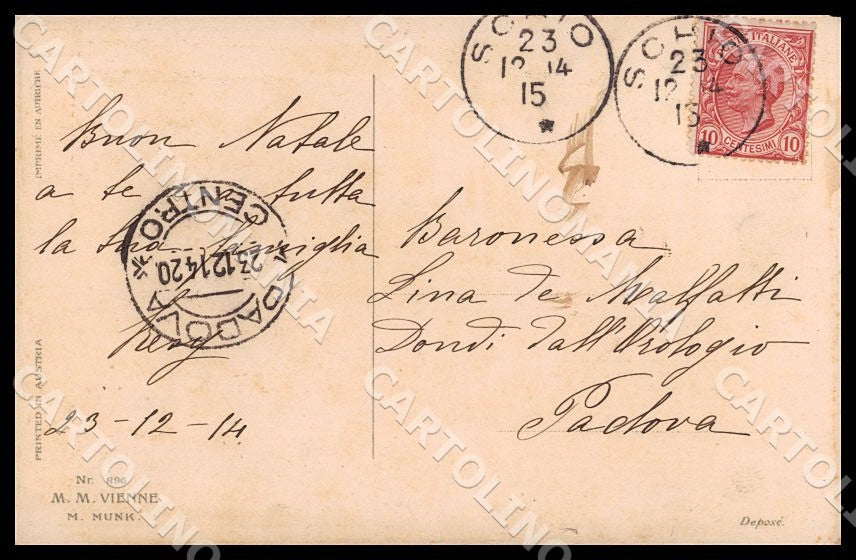 SCHIO
23
12 14
15
SCHIO
23
12 14
15
POSTE ITALIANE
10 CENTESIMI 10
Buon Natale
a te e a tutta
la tua famiglia
23-12-14
Baronessa
Lina de Malfatti
Dondi dall'Orologio
Padova
PADOVA
CENTRO
23.12.14 20
IMPRIMÉ EN AUTRICHE
PRINTED IN AUSTRIA
Nr. 896
M. M. VIENNE
M. MUNK.
Deposé.
CARTOLINOMANIA